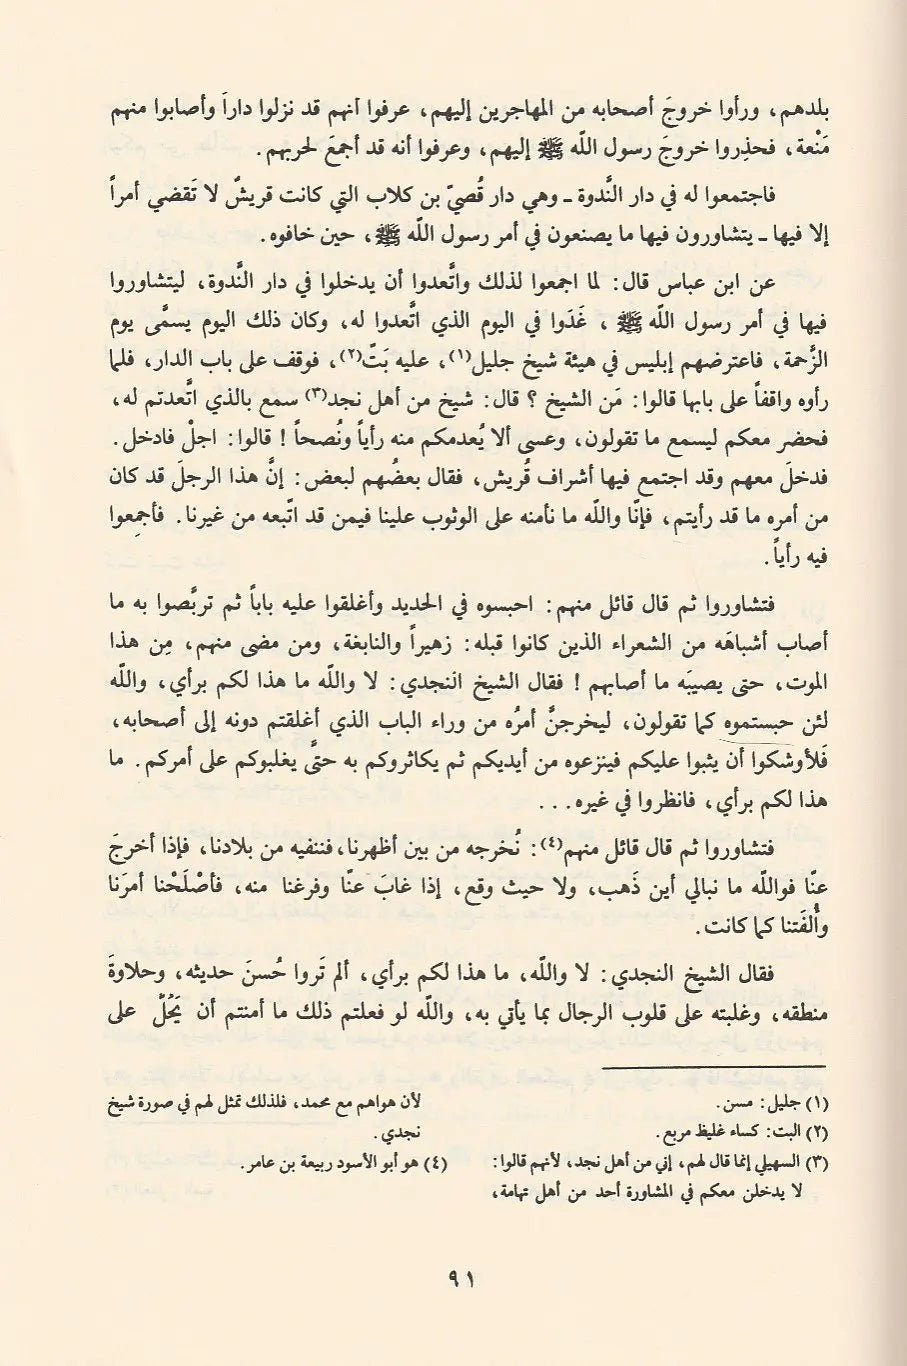 بلدهم، ورأوا خروجَ أصحابه من المهاجرين إليهم، عرفوا أنهم قد نزلوا داراً وأصابوا منهم
مَنْعة، فحذِروا خروجَ رسول اللّه ﷺ إليهم، وعرفوا أنه قد أجمعَ لحربهم.
فاجتمعوا له في دار النَّدوة ـ وهي دار قُصيّ بن كلاب التي كانت قريشٌ لا تَقضي أمراً
إلا فيها ـ يتشاورون فيها ما يصنعون في أمر رسول اللّه ﷺ، حين خافوه.
عن ابن عباس قال: لما اجمعوا لذلك واتَّعدوا أن يدخلوا في دار النَّدوة، ليتشاوروا
فيها في أمر رسول اللّه ﷺ، غَدَوا في اليوم الذي اتَّعدوا له، وكان ذلك اليوم يسمَّى يوم
الزَّحمة، فاعترضهم إبليس في هيئة شيخ جليل(١)، عليه بَتّ(٢)، فوقف على باب الدار، فلما
رأوه واقفاً على بابها قالوا: مَن الشيخ ؟ قال: شيخ من أهل نجد(٣) سمع بالذي اتَّعدتم له،
فحضر معكم ليسمع ما تقولون، وعسى ألا يُعدمكم منه رأياً ونُصحاً ! قالوا: اجلْ فادخل.
فدخلَ معهم وقد اجتمع فيها أشراف قُريش، فقال بعضُهم لبعض: إنَّ هذا الرجلَ قد كان
من أمره ما قد رأيتم، فإنّا واللّه ما نأمنه على الوثوب علينا فيمن قد اتّبعه من غيرنا. فأجمِعوا
فيه رأياً.
فتشاوروا ثم قال قائل منهم: احبسوه في الحديد وأغلقوا عليه باباً ثم تربَّصوا به ما
أصاب أشباهَه من الشعراء الذين كانوا قبله: زهيراً والنابغة، ومن مضى منهم، مِن هذا
الموت، حتى يصيبَه ما أصابهم ! فقال الشيخ النجدي: لا واللّه ما هذا لكم برأي، واللّه
لئن حبستموه كما تقولون، ليخرجنَّ أمرُه من وراء الباب الذي أغلقتم دونه إلى أصحابه،
فَلأوشكوا أن يثبوا عليكم فينزعوه من أيديكم ثم يكاثروكم به حتَّى يغلبوكم على أمركم. ما
هذا لكم برأي، فانظروا في غيره...
فتشاوروا ثم قال قائل منهم(٤): نُخرجه من بين أظهرنا، فننفيه من بلادنا، فإذا أخرجَ
عنّا فواللّه ما نبالي أين ذَهب، ولا حيث وقع، إذا غابَ عنّا وفرغنا منه، فأصْلَحْنا أمرَنا
وأُلفَتنا كما كانت.
فقال الشيخ النجدي: لا واللّه، ما هذا لكم برأي، ألم تَروا حُسنَ حديثه، وحلاوةَ
منطقه، وغلبته على قلوب الرجال بما يأتي به، واللّه لو فعلتم ذلك ما أمنتم أن يَحُلّ على
(١) جليل: مسن.
(٢) البت: كساء غليظ مربع.
(٣) السهيلي إنما قال لهم، إني من أهل نجد، لأنهم قالوا:
لا يدخلن معكم في المشاورة أحد من أهل تهامة،
لأن هواهم مع محمد، فلذلك تمثل لهم في صورة شيخ
نجدي.
(٤) هو أبو الأسود ربيعة بن عامر.
٩١